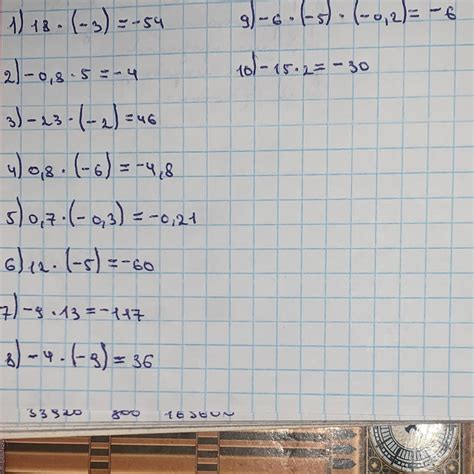 1) 18 · (-3) = -54
2) -0,8 · 5 = -4
3) -23 · (-2) = 46
4) 0,8 · (-6) = -4,8
5) 0,7 · (-0,3) = -0,21
6) 12 · (-5) = -60
7) -9 · 13 = -117
8) -4 · (-9) = 36
9) -6 · (-5) · (-0,2) = -6
10) -15 · 2 = -30